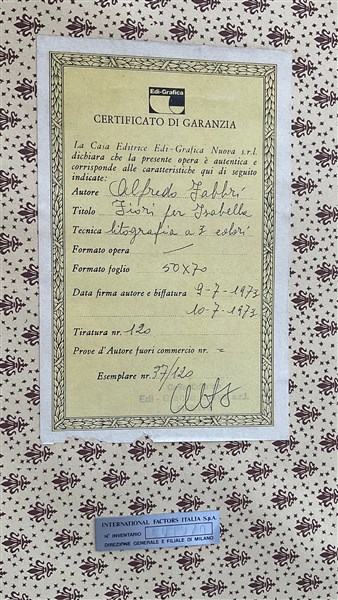 Edi-Grafica
CERTIFICATO DI GARANZIA
La Casa Editrice Edi-Grafica Nuova s.r.l.
dichiara che la presente opera è autentica e
corrisponde alle caratteristiche qui di seguito
indicate:
Autore Alfredo Fabbri
Titolo Fiori per Isabella
Tecnica litografia a 3 colori
Formato opera —
Formato foglio 50x70
Data firma autore e biffatura 9-7-1973
10-7-1973
Tiratura nr. 120
Prove d'Autore fuori commercio nr. =
Esemplare nr. 37/120
Edi - s.r.l.
INTERNATIONAL FACTORS ITALIA S.p.A
N° INVENTARIO
DIREZIONE GENERALE E FILIALE DI MILANO